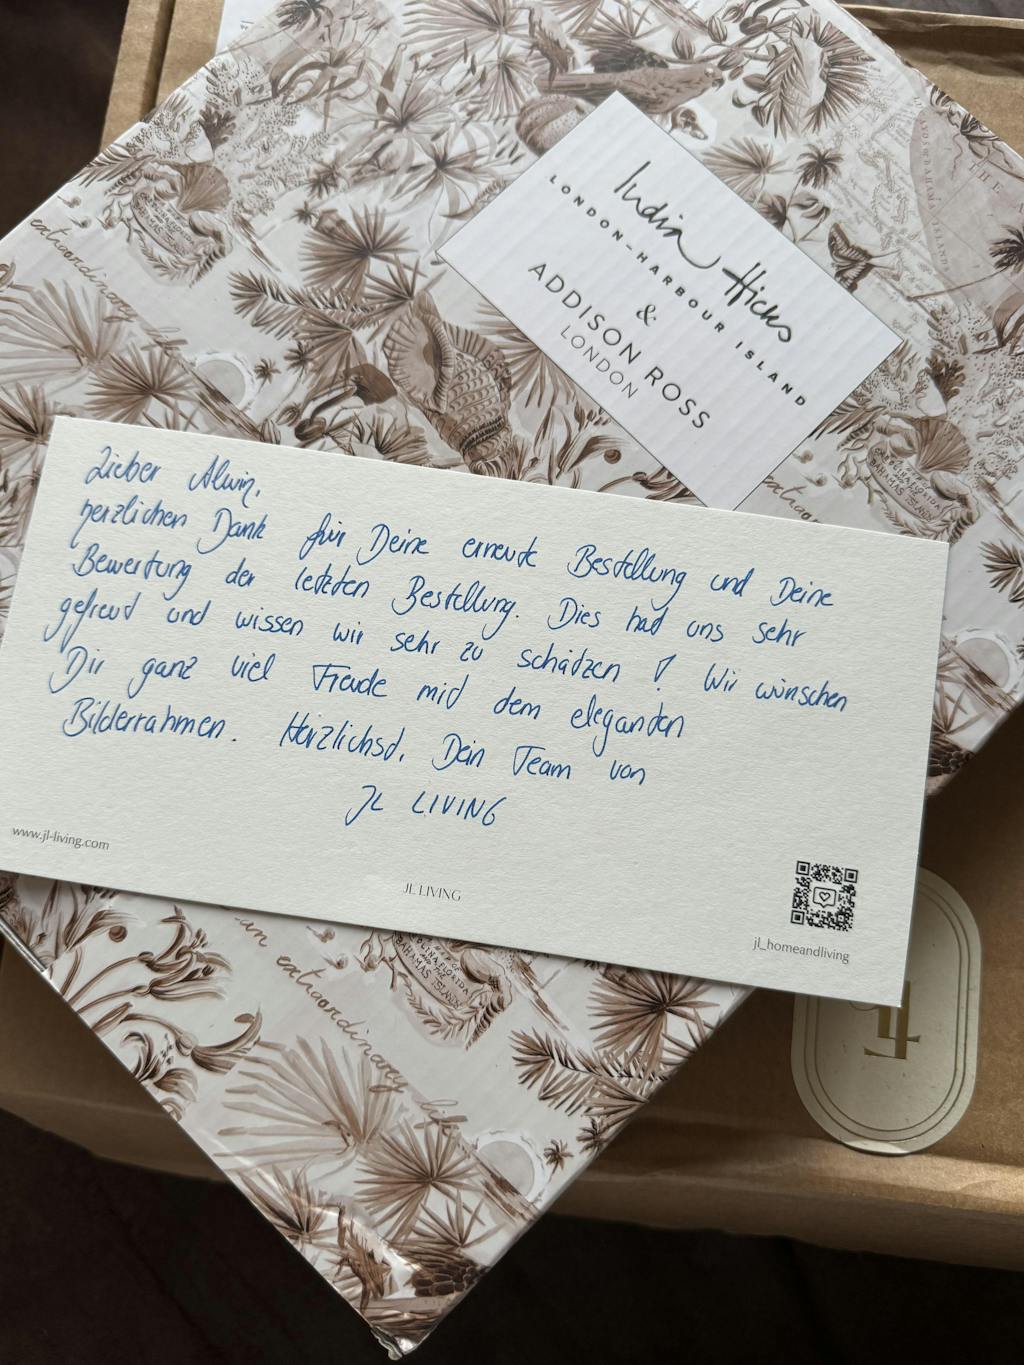 India Hicks
LONDON-HARBOUR ISLAND
&
ADDISON ROSS
LONDON
extraordinary
Lieber Alwin,
herzlichen Dank für Deine erneute Bestellung und Deine
Bewertung der letzten Bestellung. Dies hat uns sehr
gefreut und wissen wir sehr zu schätzen! Wir wünschen
Dir ganz viel Freude mit dem eleganten
Bilderrahmen. Herzlichst, Dein Team von
JL LIVING
www.jl-living.com
JL LIVING
jl_homeandliving
an extraordinary
BAHAMAS ISLANDS